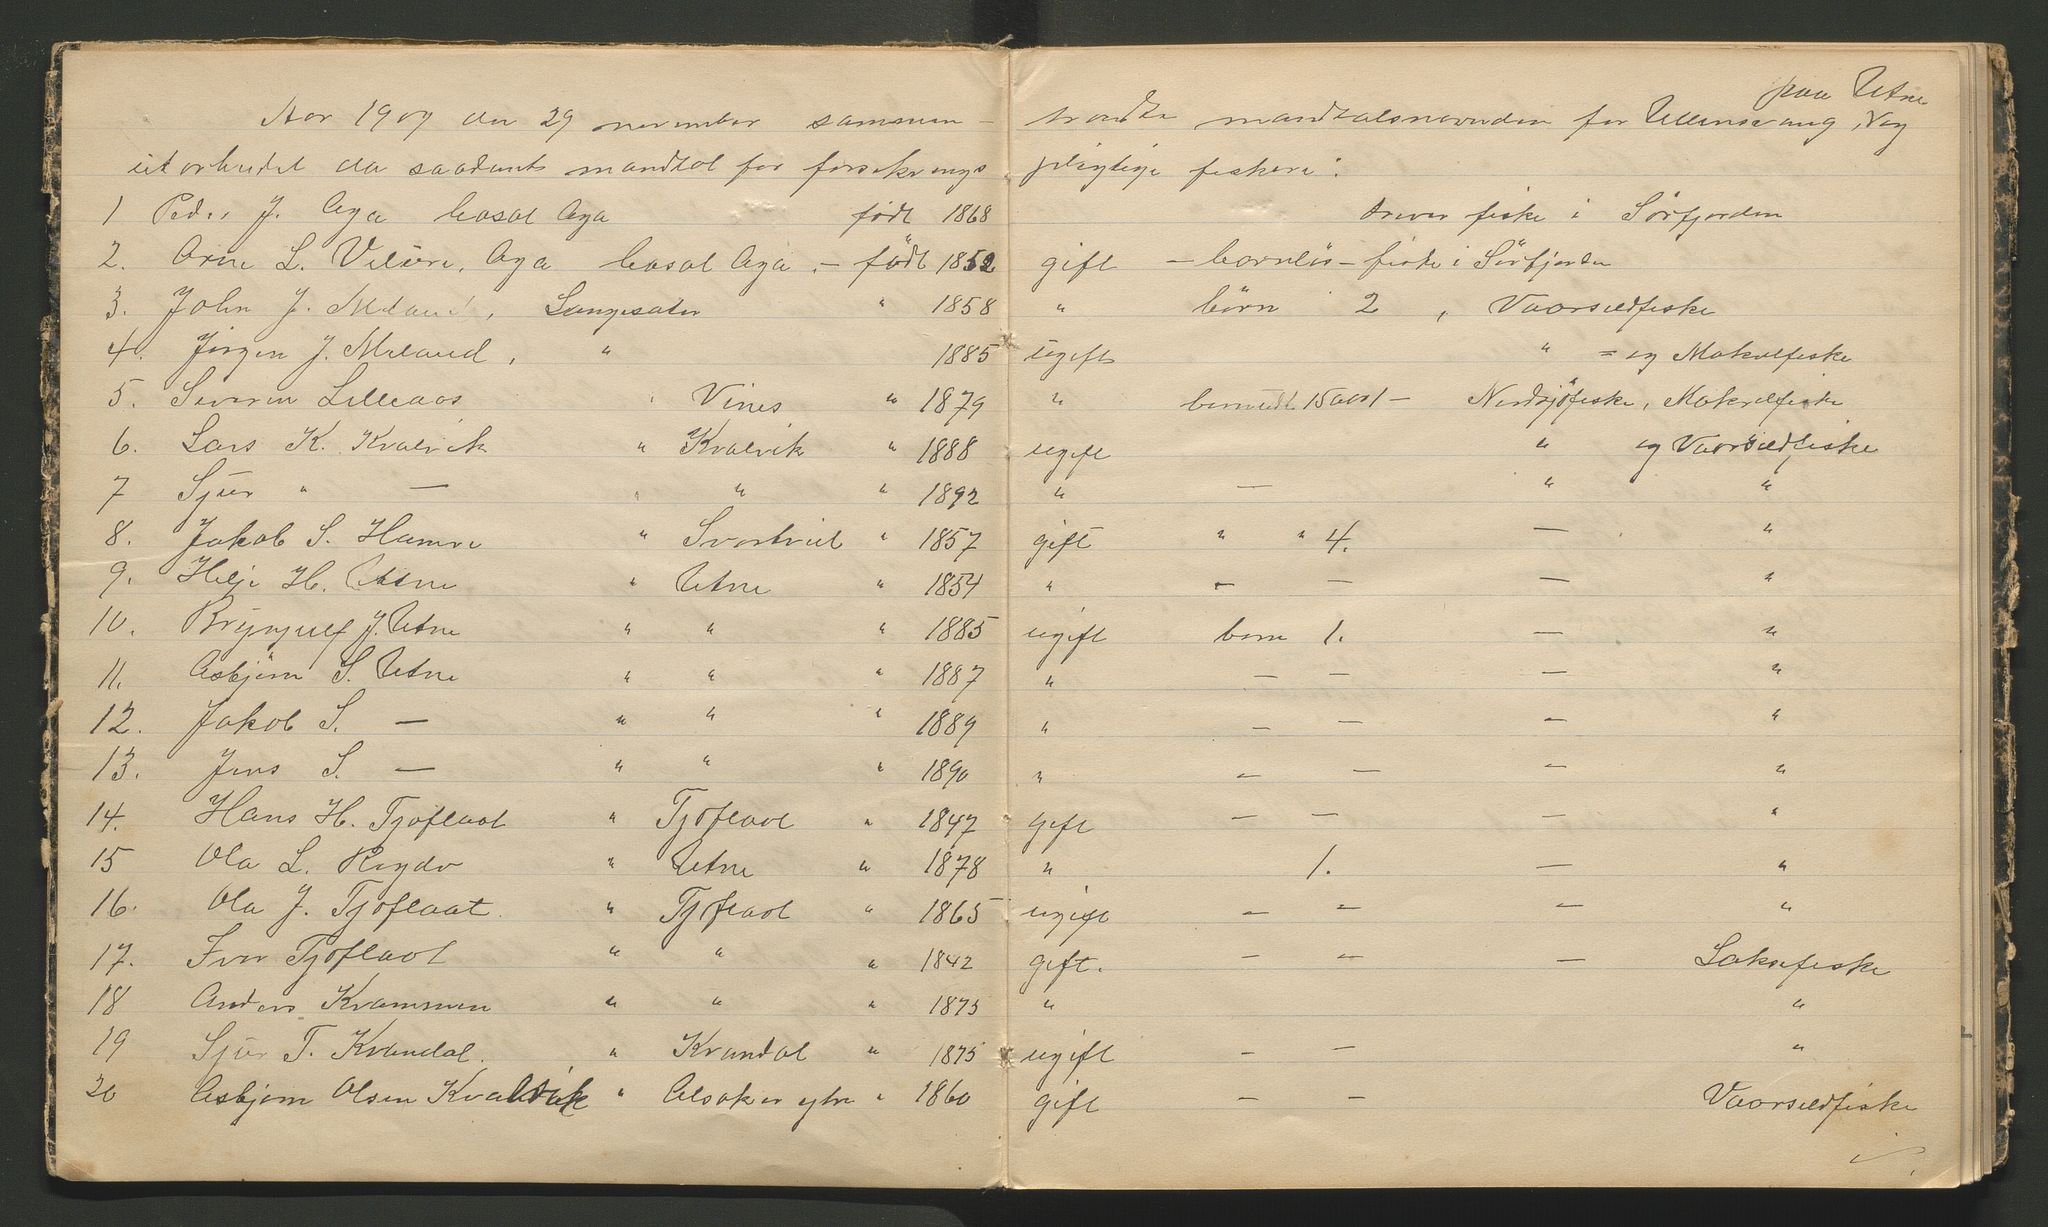 paa Utne
Aar 1909 den 29 november sammen- traadte mandtalsnevnden for Ullensvang, og
utarbeidet da saadant mandtal for forsikrings pligtige fiskere:
1 Peder J. Aga bosat Aga født 1868 driver fiske i Sørfjorden
2. Arne L. Velure, Aga bosat Aga, - født 1852 gift - barnløs - fiske i Sørfjorden
3. John J. Mæland, Langesater " 1858 " børn 2, Vaarsildfiske
4. Jørgen J. Mæland, " 1885 ugift " = og Makrelfiske
5. Severin Lilleaas " Vines " 1879 " 15 aar - Nordsjøfiske, Makrelfiske
6. Lars K. Kvalvik " Kvalvik " 1888 ugift " og Vaarsildfiske
7 Sjur " — " " " 1892 " — " "
8. Jakob S. Hamre " Svartveit " 1857 gift " " 4. — "
9. Helje H. Utne " Utne " 1854 " — — — "
10. Brynjulf J. Utne " " " 1885 ugift barn 1. — "
11. Asbjørn S. Utne " " " 1887 " — — — "
12. Jakob S. — " " " 1889 " — — — "
13. Jens S. — " " " 1890 " — — — "
14. Hans H. Tjoflaat " Tjoflaat " 1847 gift — — — "
15 Ola L. " Utne " 1878 " 1. — "
16. Ola J. Tjoflaat. " Tjoflaat " 1865 ugift — — — "
17. Iver Tjoflaat " " " 1842 gift. — — — Laksefiske
18 Anders Kvammen " " " 1875 " "
19 Sjur T. Kvandal. " Kvandal " 1875 ugift — — "
20 Asbjørn Olsen Kvalvik " Alsaker ytre " 1860 gift — — Vaarsildfiske